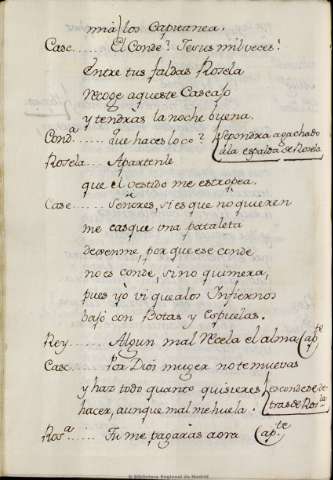 mia, los Capitanea.
Casc..... El Conde? Jesus mil veces!
Entre tus faldas Rosela
Recoge aqueste Cascajo
y tendras la noche buena.
Cond.ª Que haces loco? Se pondra agachado
a la espalda de Rosela
Rosela.... Apartente
que el vestido me estropea.
Casc..... Señores, si es que no quieren
me casque una pataleta
dexenme, por que ese conde
no es conde, sino quimera,
pues yo vi que a los Infiernos
bajó con Botas y espuelas.
Rey..... Algun mal Recela el alma (ap.te
Casc..... Por Dios muger no te muevas
y haz todo quanto quisieres esconde se de
tras de Ros.la
hacer, aunque mal me huela.
Ros.ª..... Tu me pagaras aora (ap.te
© Biblioteca Regional de Madrid